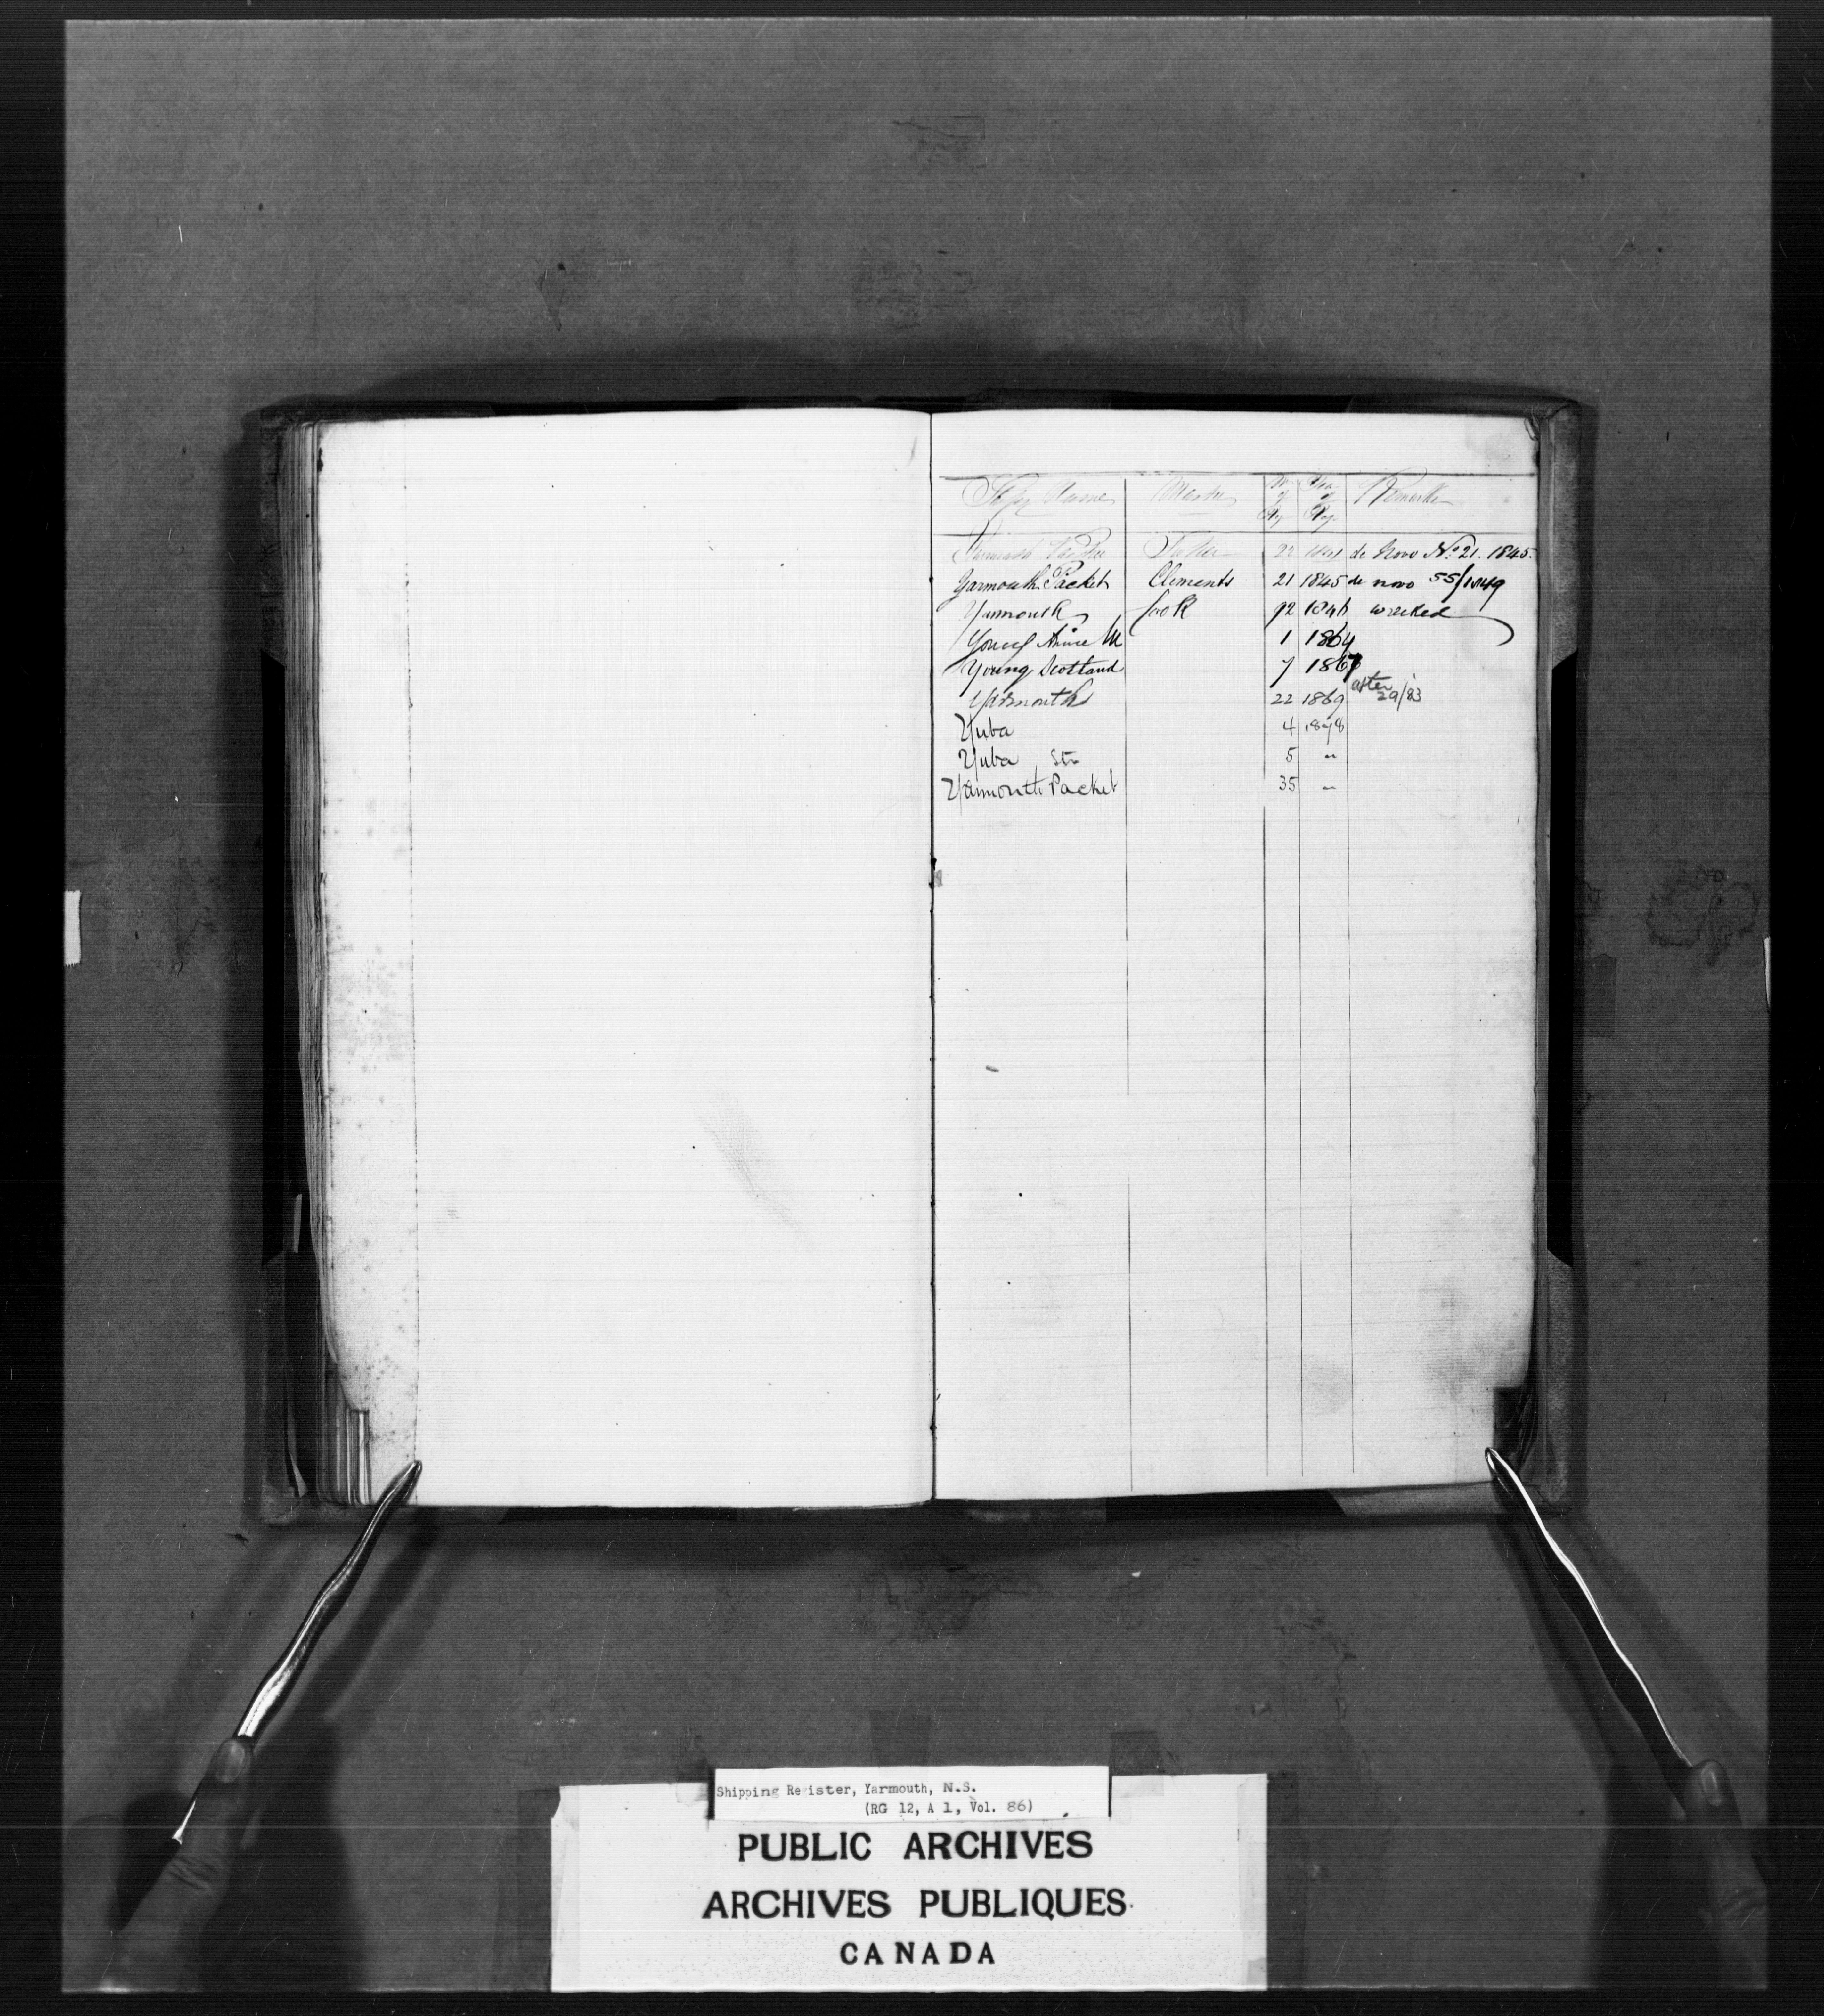 Ships Name Master No of Reg Year of Reg Remarks
Yarmouth Packet 22 1841 de Novo No. 21. 1845.
Yarmouth Packet Clements 21 1845 de novo 55/1849
Yarmouth Cook 92 1846 wrecked
Young M 1 1864
Young Scotland 7 1867
Yarmouth 22 1869 after 29/83
Yuba 4 1878
Yuba Str 5 "
Yarmouth Packet 35 "
Shipping Register, Yarmouth, N.S.
(RG 12, A 1, Vol. 86)
PUBLIC ARCHIVES
ARCHIVES PUBLIQUES
CANADA